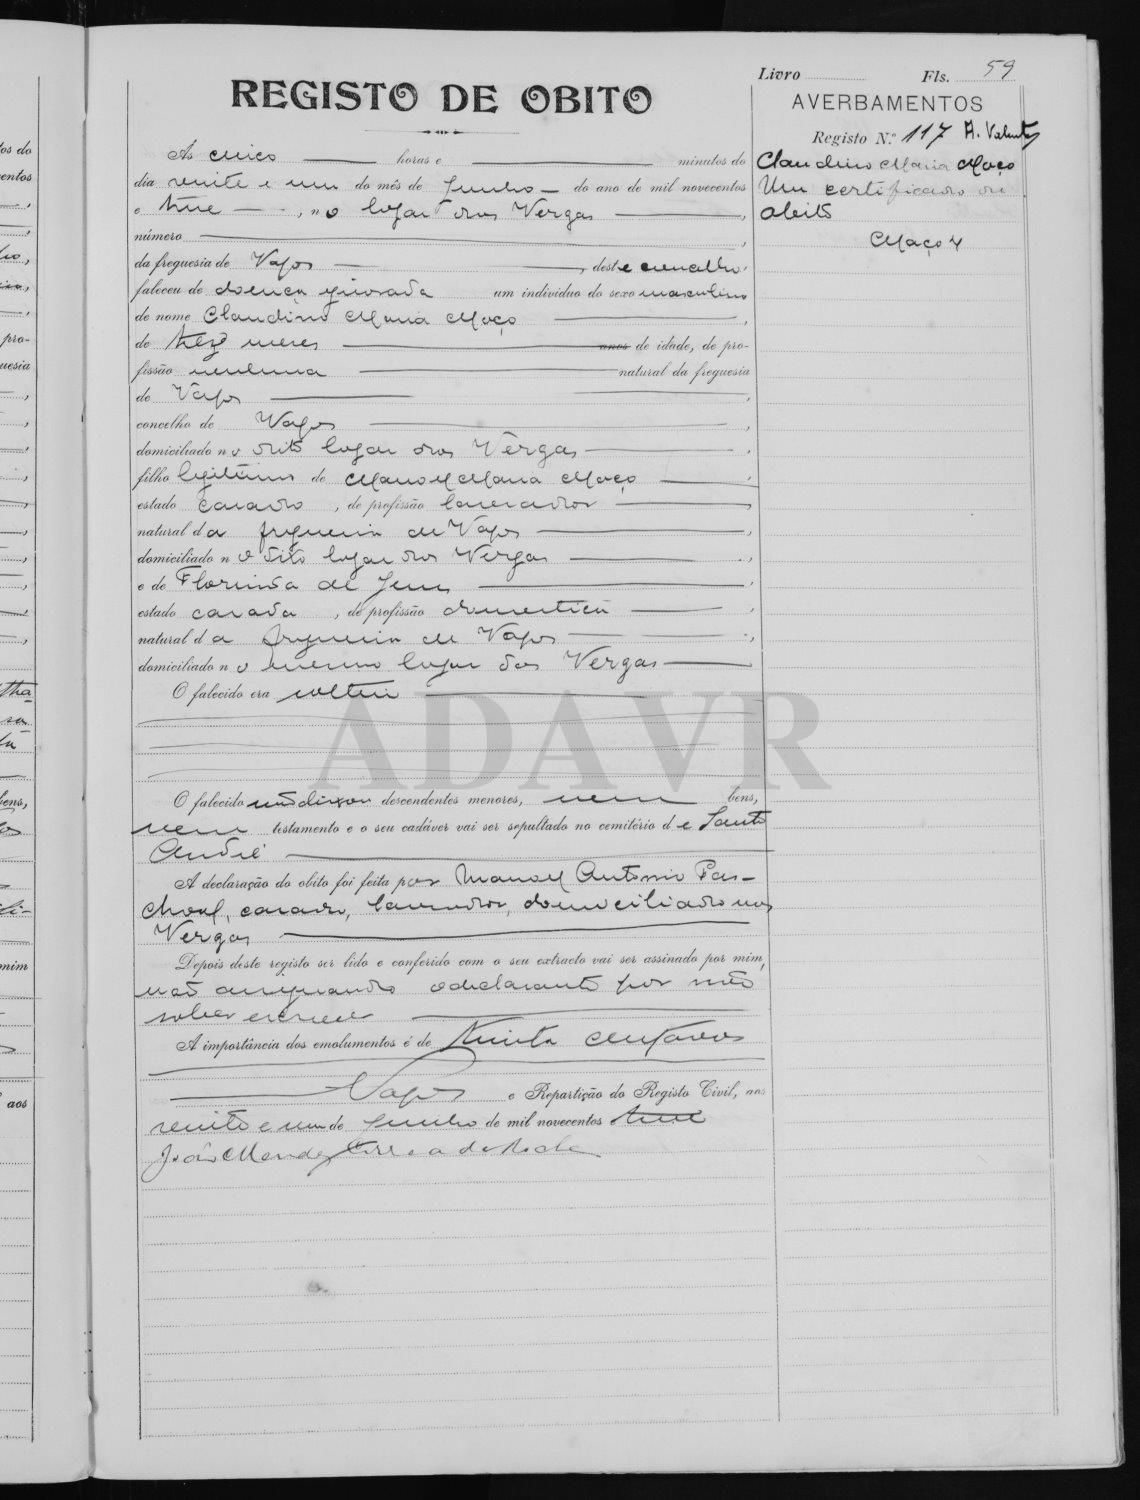 Livro Fls. 59
REGISTO DE OBITO
AVERBAMENTOS
Registo N.º 117 A. Valente
As cinco horas e minutos do
dia vinte e um do mês de Junho do ano de mil novecentos
e treze, no lugar dos Vergas,
número,
da freguesia de Vagos, deste concelho
faleceu de doença ignorada um individuo do sexo masculino
de nome Claudino Maria Moço,
de treze meses anos de idade, de pro-
fissão nenhuma natural da freguesia
de Vagos,
concelho de Vagos,
domiciliado no dito lugar dos Vergas,
filho legitimo de Manoel Maria Moço,
estado casado, de profissão lavrador,
natural da freguesia de Vagos,
domiciliado no dito lugar dos Vergas,
e de Florinda de Jesus,
estado casada, de profissão domestica,
natural da freguesia de Vagos,
domiciliado no mesmo lugar dos Vergas
O falecido era solteiro
O falecido não deixou descendentes menores, nem bens,
nem testamento e o seu cadáver vai ser sepultado no cemitério de Santo
André
A declaração do obito foi feita por Manoel Antonio Pas-
choal, casado, lavrador, domiciliado nos
Vergas
Depois deste registo ser lido e conferido com o seu extracto vai ser assinado por mim,
não assignando o declarante por não
saber escrever
A importância dos emolumentos é de trinta centavos
Vagos e Repartição do Registo Civil, aos
vinte e um de Junho de mil novecentos treze
João Mendes Correia da Rocha
Claudino Maria Moço
Um certificado de
obito
Maço 4
ADAVR